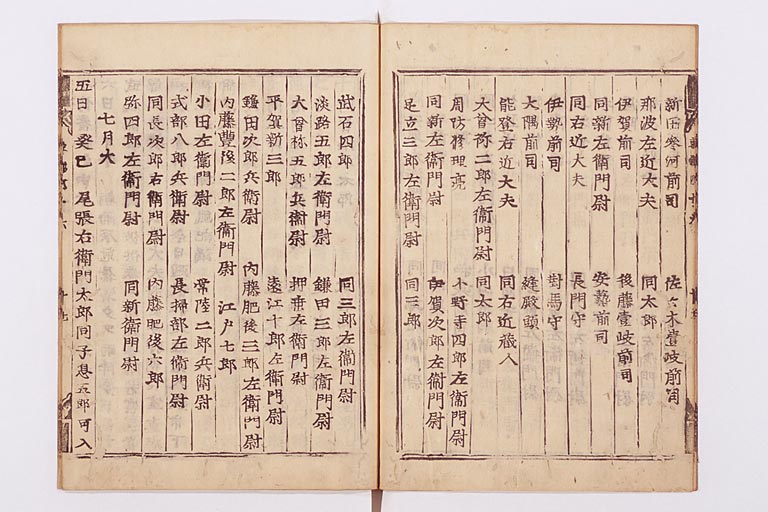 新田参河前司　佐々木壹岐前司
那波左近大夫　同太郎
伊賀前司　後藤壹岐前司
同新左衛門尉　安藝前司
同右近大夫　長門守
伊勢前司　對馬守
大隅前司　縫殿頭
能登右近大夫　同右近蔵人
大曾祢二郎左衛門尉　同太郎
周防修理亮　小野寺四郎左衛門尉
同新左衛門尉　伊賀次郎左衛門尉
足立三郎左衛門尉　同三郎
武石四郎　同三郎左衛門尉
淡路五郎左衛門尉　鎌田三郎左衛門尉
大曾祢五郎兵衛尉　押垂左衛門尉
平賀新三郎　遠江十郎左衛門尉
鎌田次郎兵衛尉　内藤肥後三郎左衛門尉
内藤豊後二郎左衛門尉　江戸七郎
小田左衛門尉　常陸二郎兵衛尉
式部八郎兵衛尉　長掃部左衛門尉
同長次郎右衛門尉　内藤肥後六郎
弥四郎左衛門尉　同新衛門尉
七月大
五日癸巳　尾張右衛門太郎同子息五郎可入